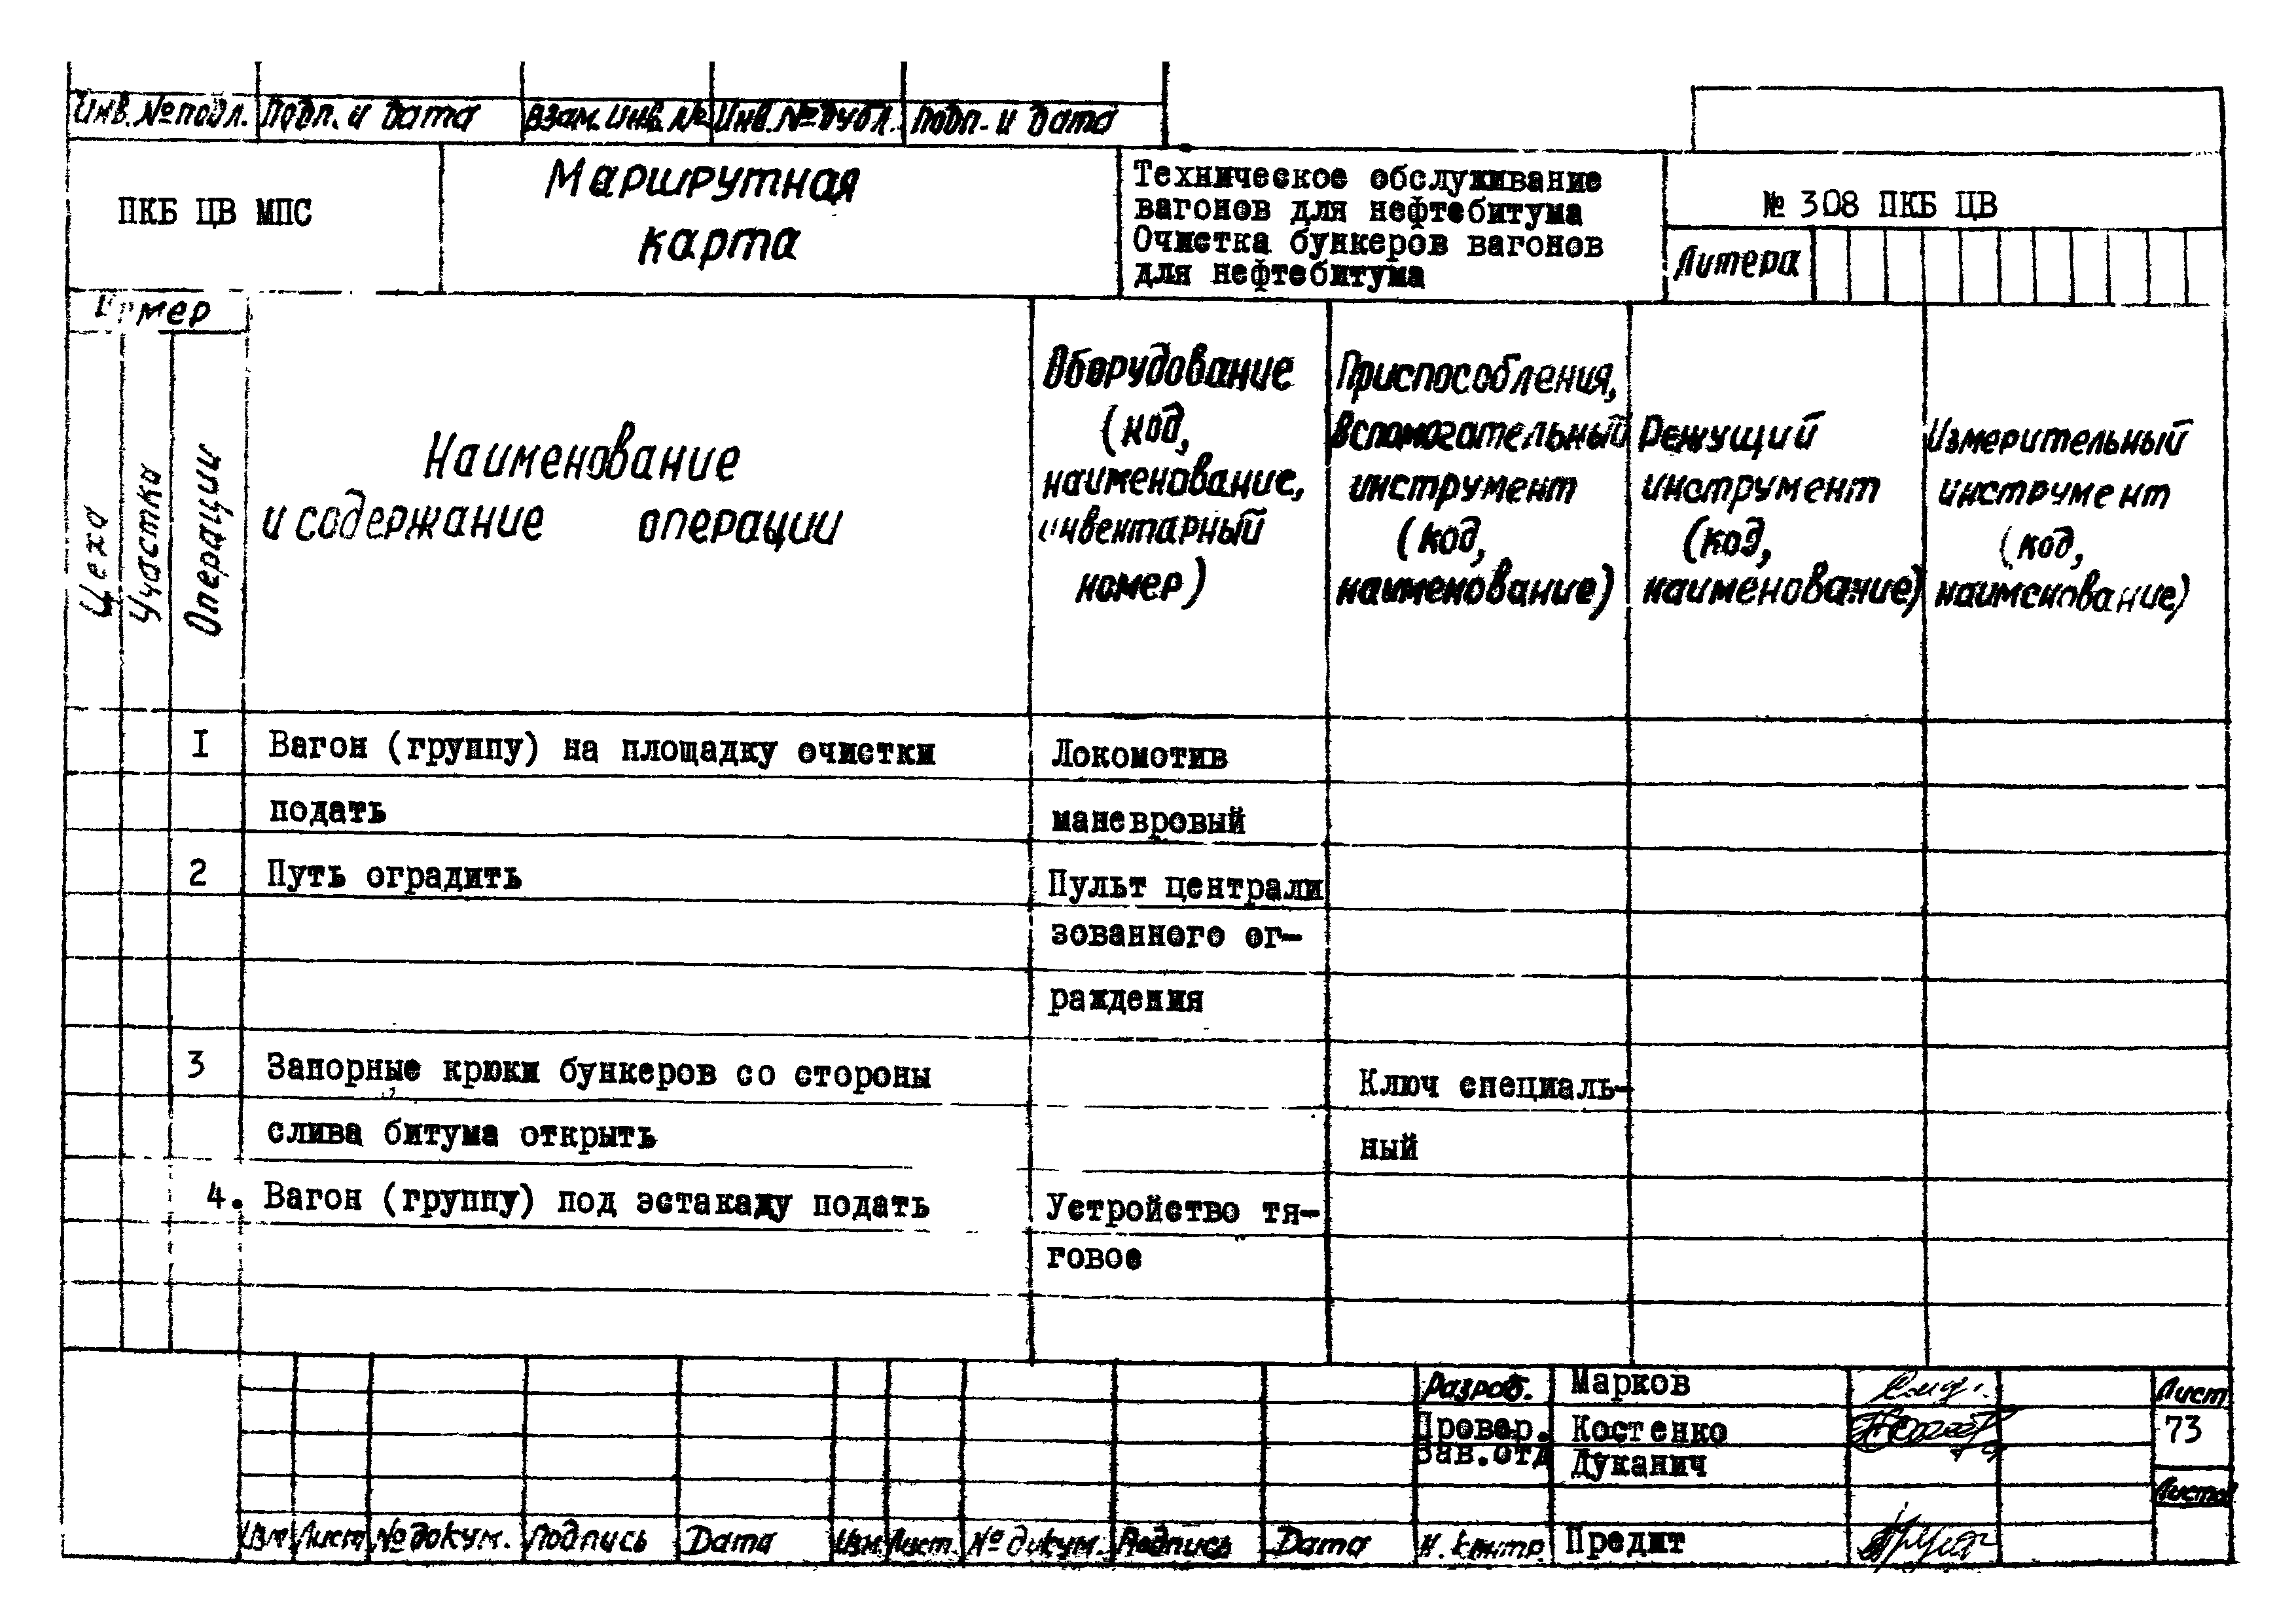 Инв. № подл. Подп. и дата Взам. инв. № Инв. № дубл. Подп. и дата
ПКБ ЦВ МПС
Маршрутная
карта
Техническое обслуживание
вагонов для нефтебитума
Очистка бункеров вагонов
для нефтебитума
№ 308 ПКБ ЦВ
Литера
Номер
Цеха
Участка
Операции
Наименование
и содержание операции
Оборудование
(код,
наименование,
инвентарный
номер)
Приспособления,
Вспомогательный
инструмент
(код,
наименование)
Режущий
инструмент
(код,
наименование)
Измерительный
инструмент
(код,
наименование)
I Вагон (группу) на площадку очистки Локомотив
подать маневровый
2 Путь оградить Пульт централи
зованного ог-
раждения
3 Запорные крюки бункеров со стороны Ключ специаль-
слива битума открыть ный
4. Вагон (группу) под эстакаду подать Устройство тя-
говое
Разраб. Марков Лист
Провер. Костенко 73
Зав.отд Дуканич
Листов
Изм Лист № докум. Подпись Дата Изм. Лист. № докум. Подпись Дата Н. контр. Предит